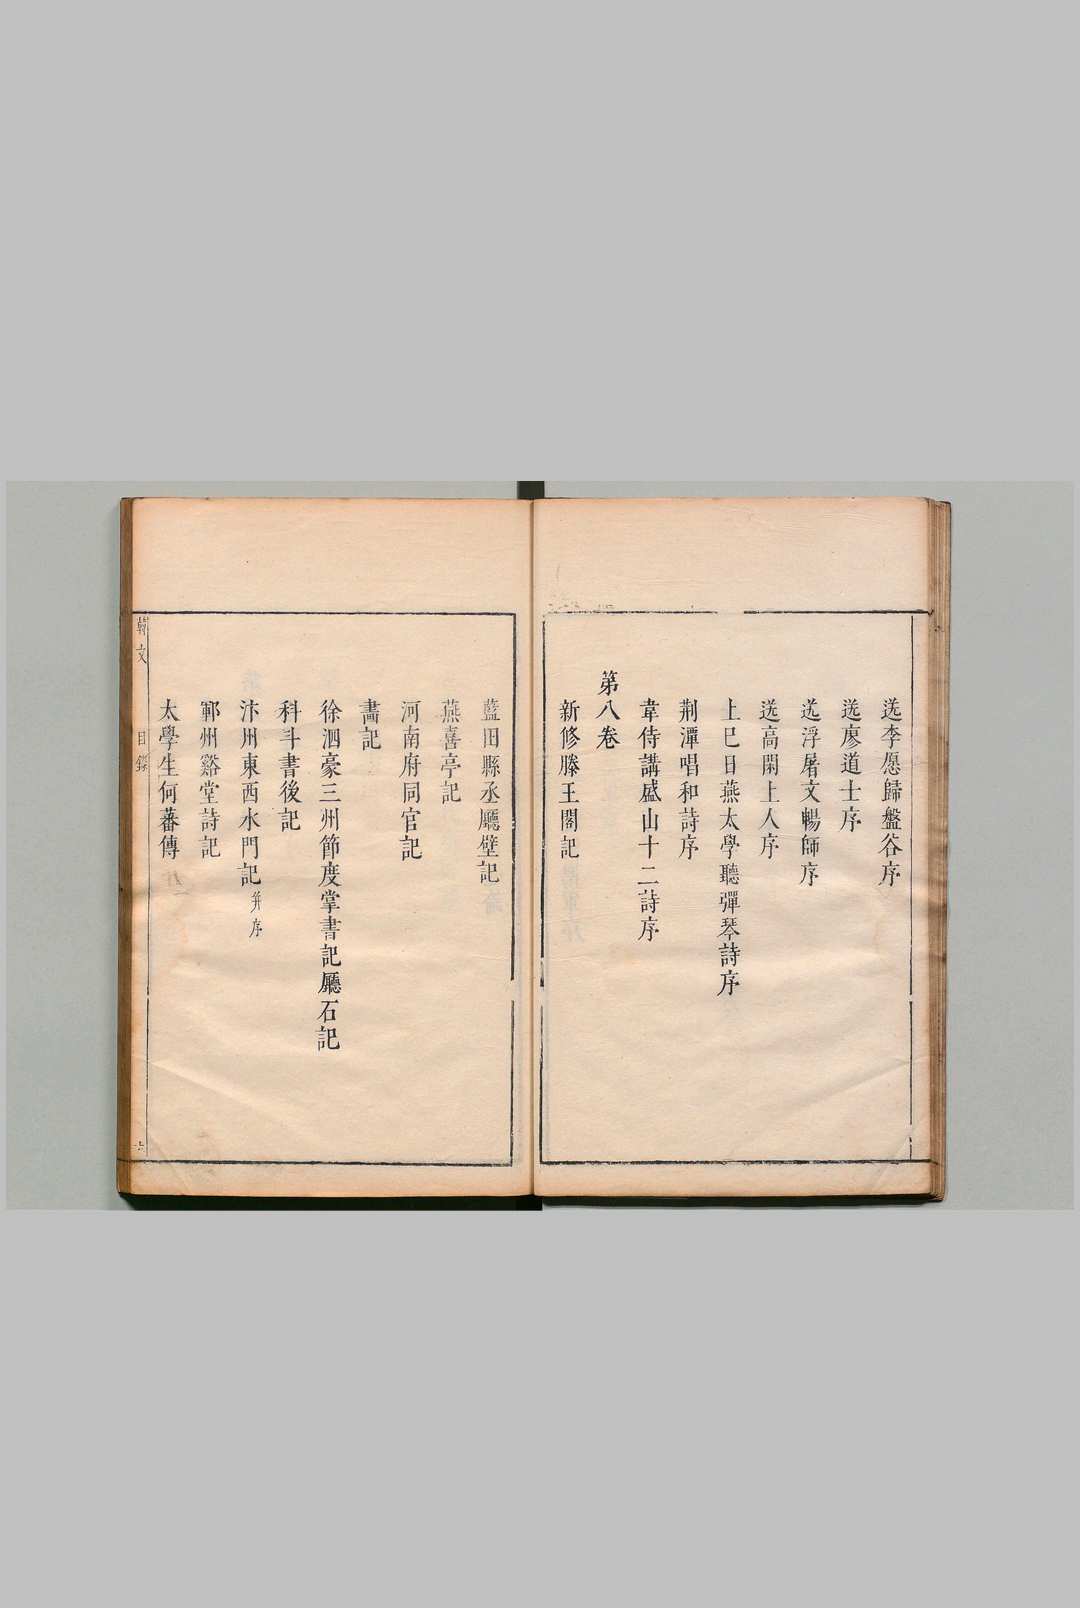 送李愿歸盤谷序
送廖道士序
送浮屠文暢師序
送高閑上人序
上巳日燕太學聽彈琴詩序
荆潭唱和詩序
韋侍講盛山十二詩序
第八卷
新修滕王閣記
藍田縣丞廳壁記
燕喜亭記
河南府同官記
畵記
徐泗豪三州節度掌書記廳石記
科斗書後記
汴州東西水門記并序
鄆州谿堂詩記
太學生何蕃傳
韓文 目錄 六